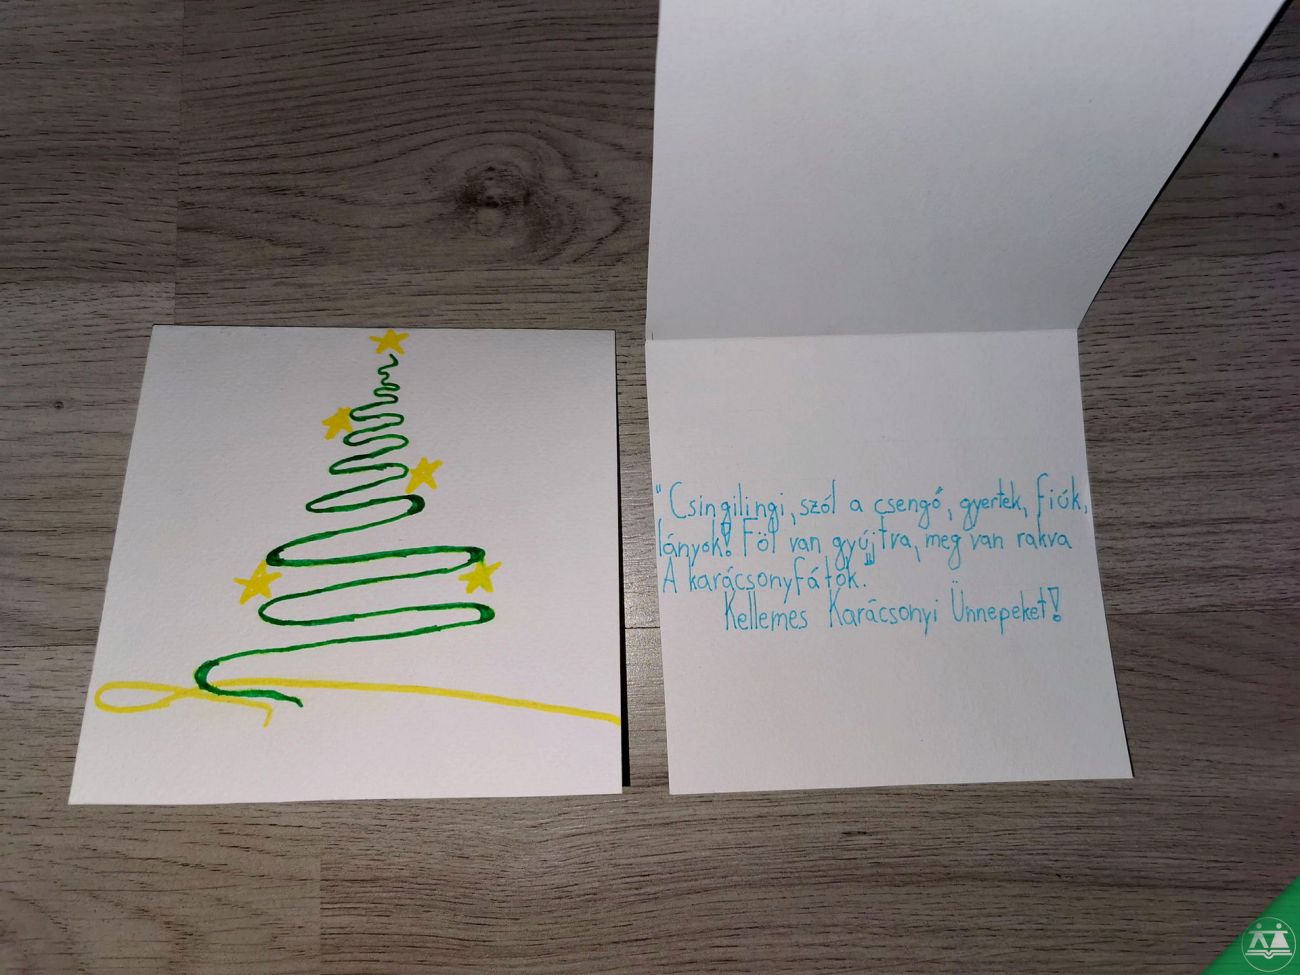 "Csingilingi, szól a csengő, gyertek, fiúk,
lányok! Föl van gyújtva, meg van rakva
A karácsonyfátok."
Kellemes Karácsonyi Ünnepeket!